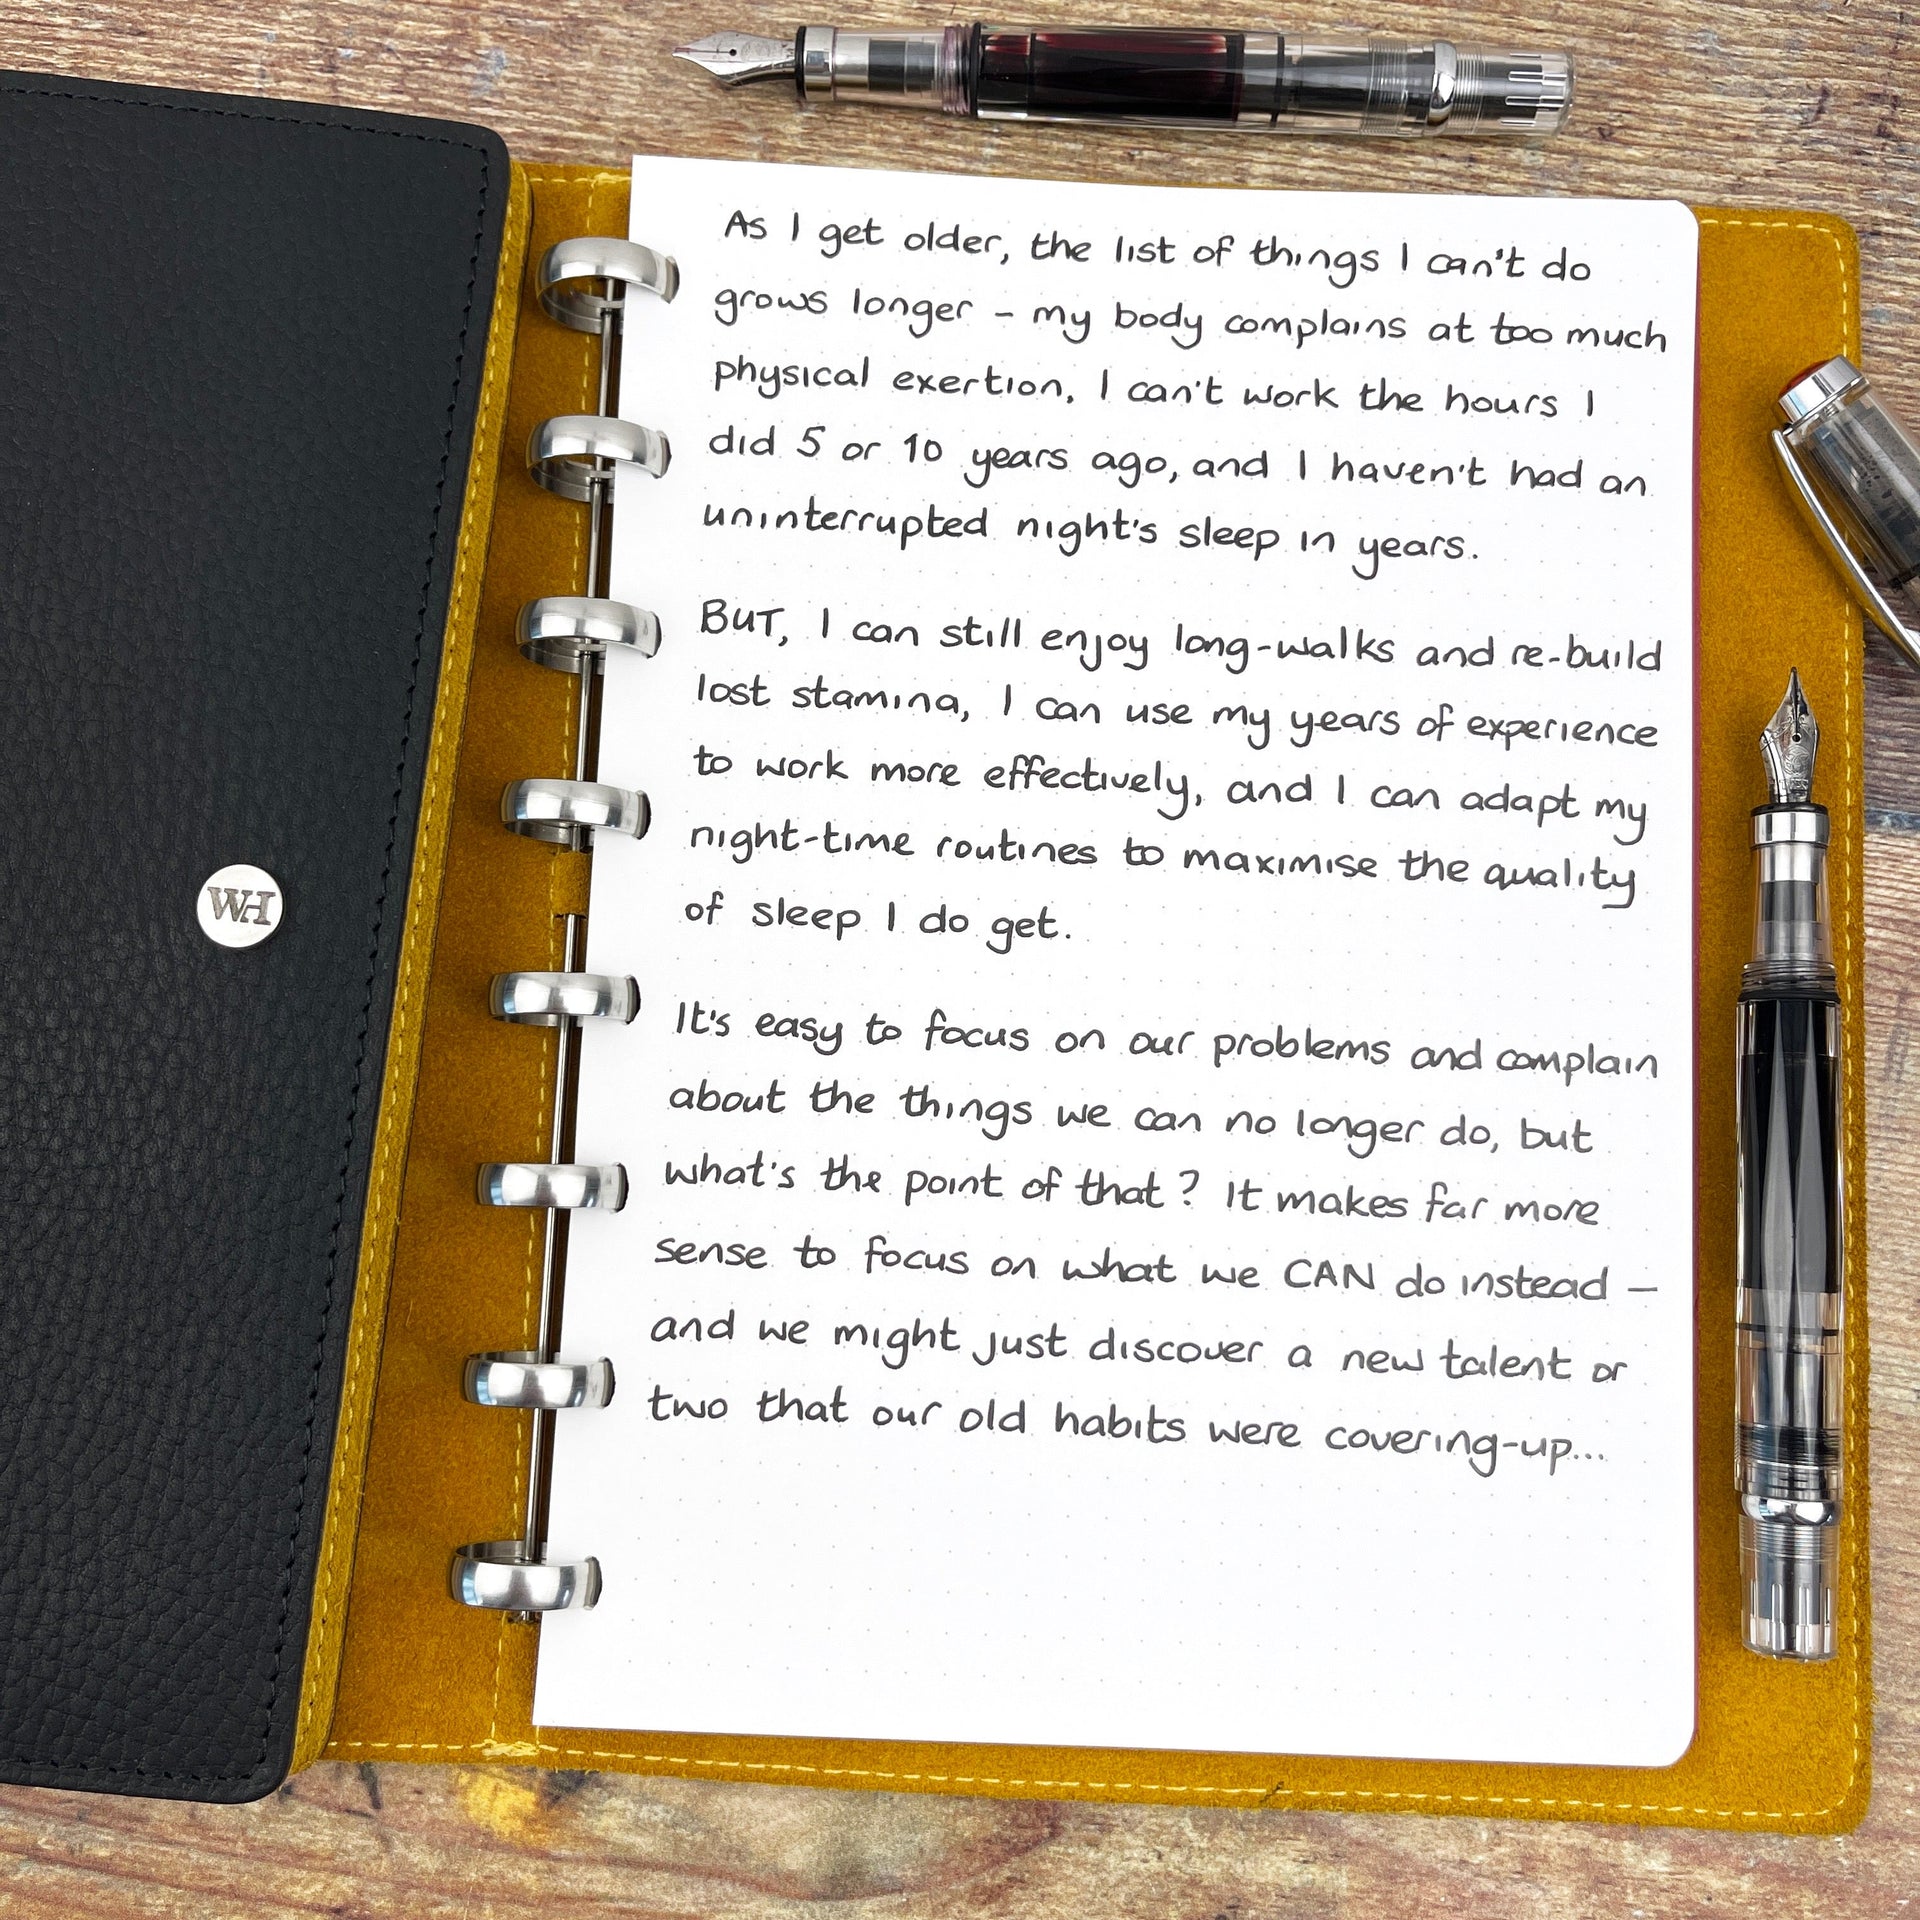 WH
As I get older, the list of things I can't do
grows longer - my body complains at too much
physical exertion, I can't work the hours I
did 5 or 10 years ago, and I haven't had an
uninterrupted night's sleep in years.
BUT, I can still enjoy long-walks and re-build
lost stamina, I can use my years of experience
to work more effectively, and I can adapt my
night-time routines to maximise the quality
of sleep I do get.
It's easy to focus on our problems and complain
about the things we can no longer do, but
what's the point of that? It makes far more
sense to focus on what we CAN do instead –
and we might just discover a new talent or
two that our old habits were covering-up...